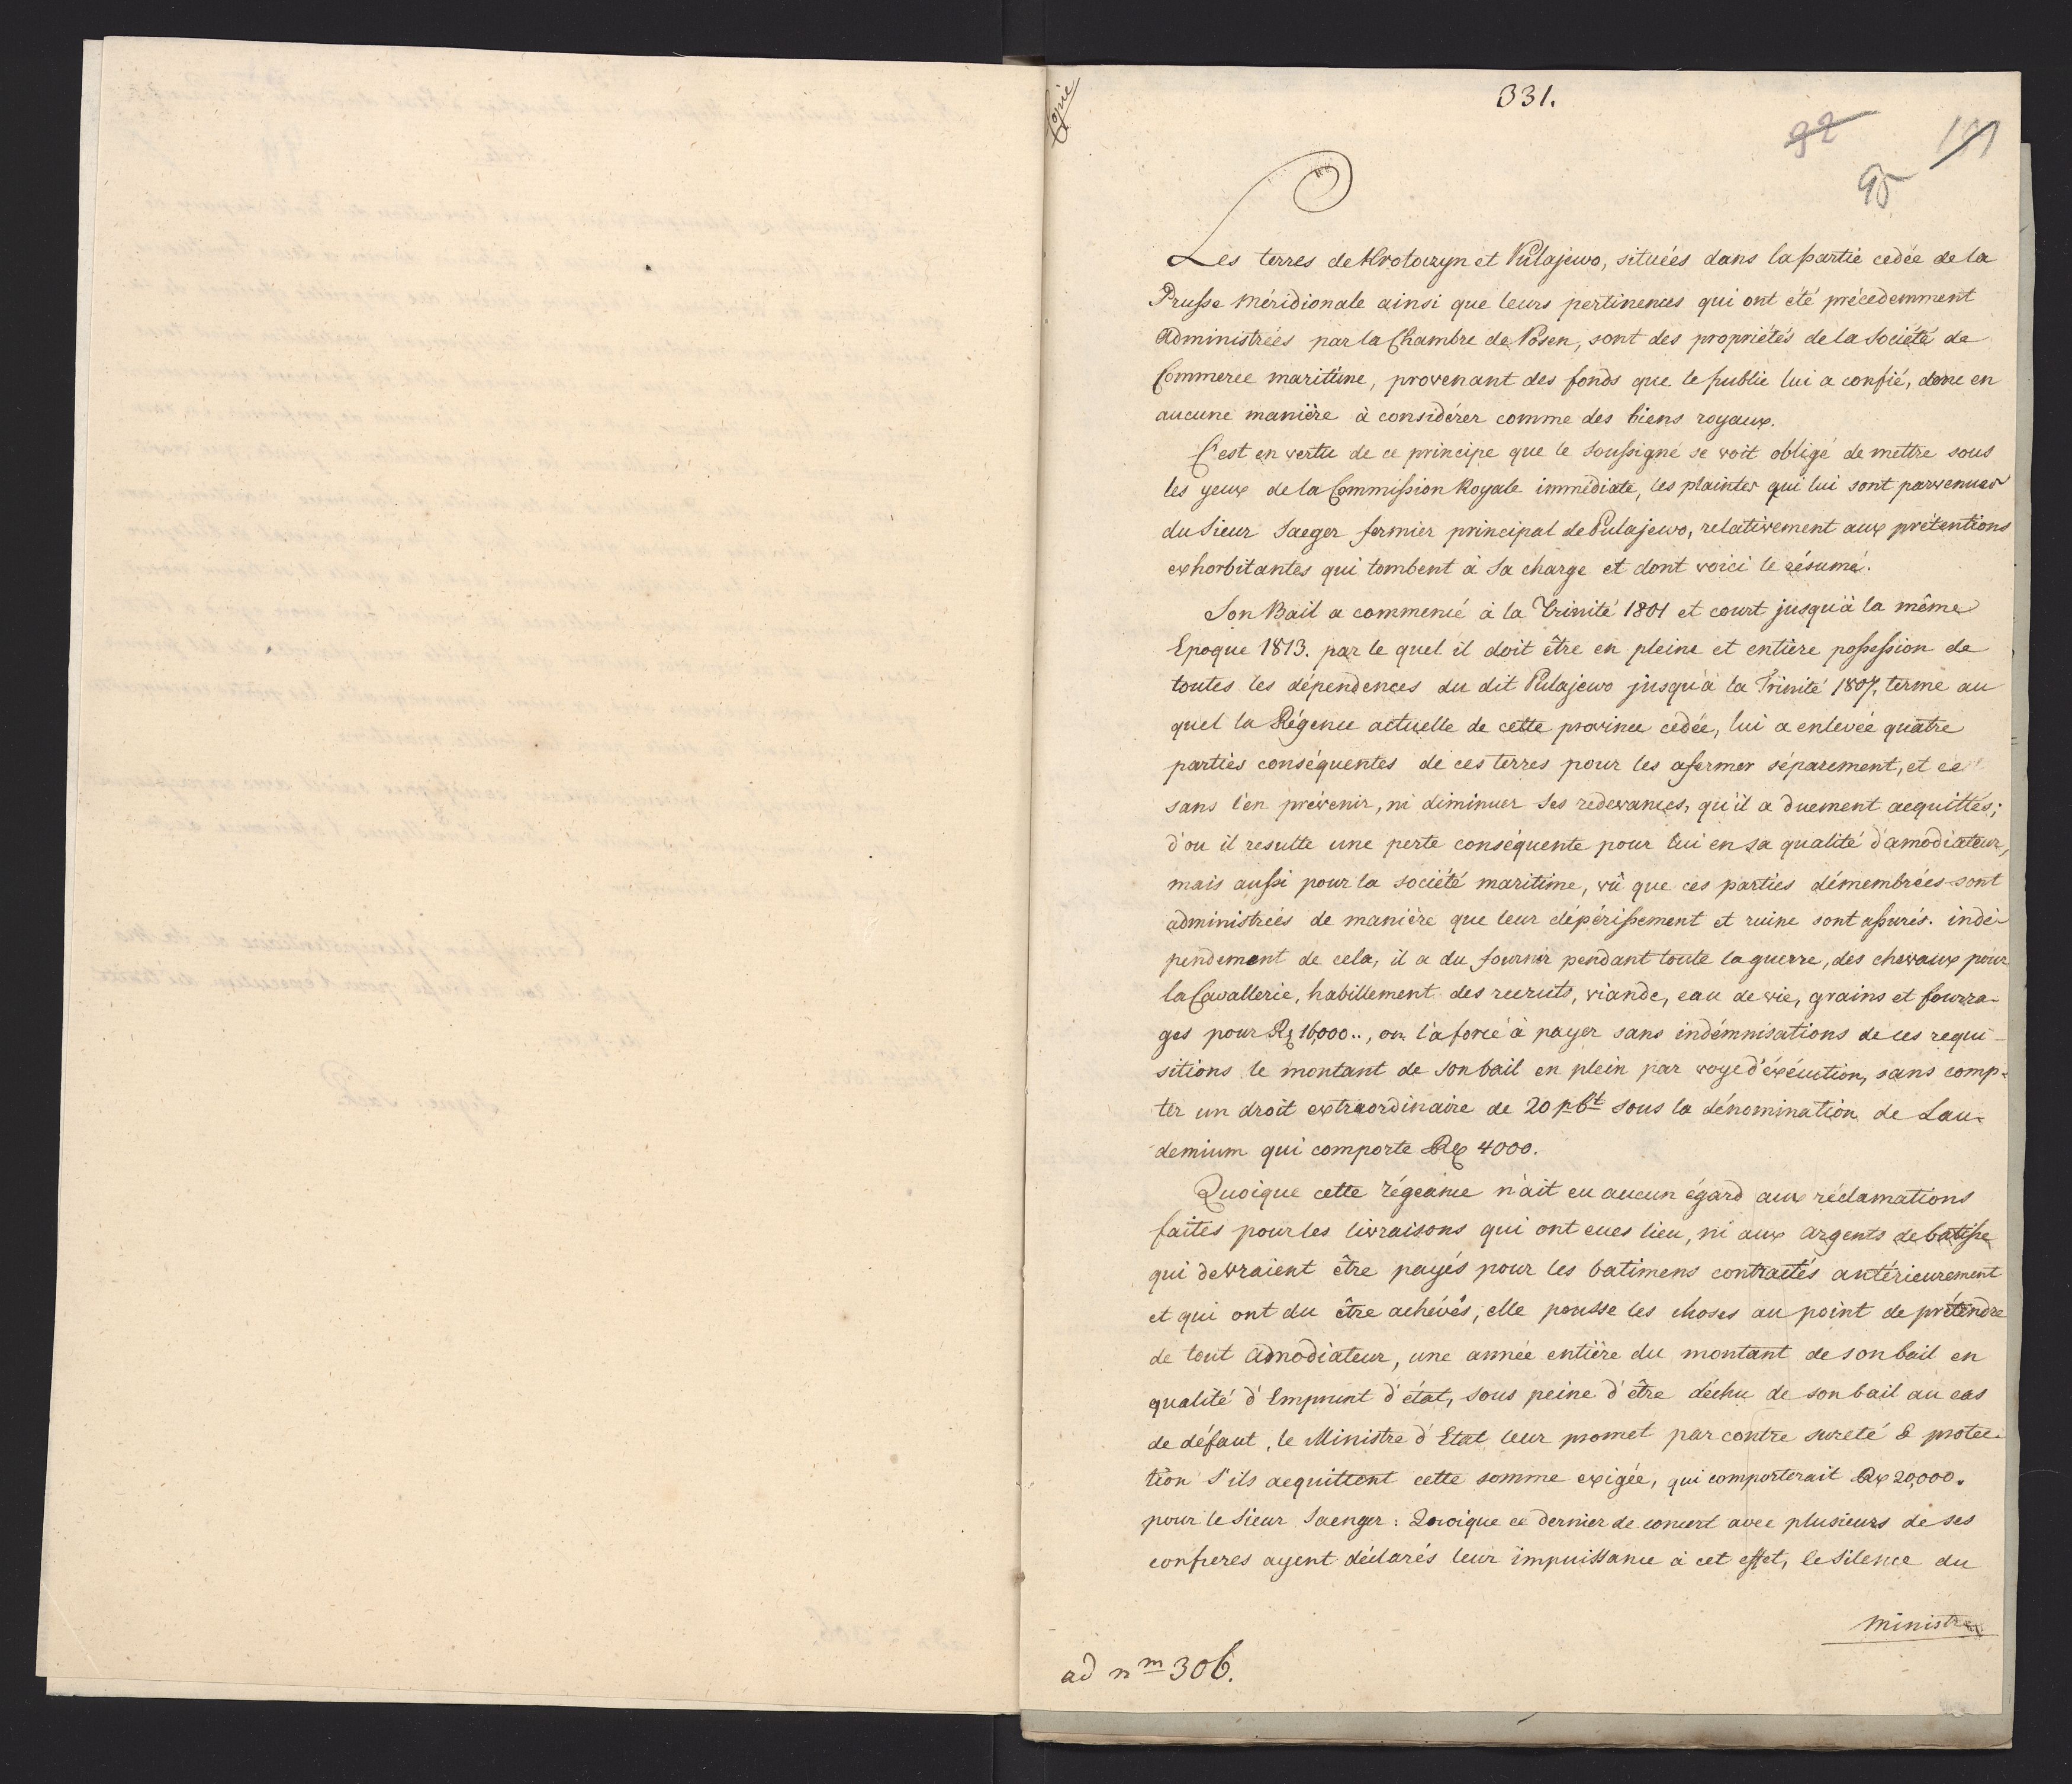 Copie
331.
92
111
95
Les terres de Krotoczyn et Pulajewo, situées dans la partie cedée de la
Prusse Méridionale ainsi que leurs pertinences qui ont été précedemment
Administrées par la Chambre de Posen, sont des propriétés de la Société de
Commerce maritime, provenant des fonds que le public lui a confié, donc en
aucune manière à considérer comme des biens royaux.
C'est en vertu de ce principe que le Soussigné se voit obligé de mettre sous
les yeux de la Commission Royale immédiate, les plaintes qui lui sont parvenues
du Sieur Saeger fermier principal de Pulajewo, relativement aux prétentions
exhorbitantes qui tombent à sa charge et dont voici le résumé.
Son Bail a commencé à la Trinité 1801 et court jusqu'à la même
Epoque 1813. par le quel il doit être en pleine et entière possession de
toutes les dépendences du dit Pulajewo jusqu'à la Trinité 1807, terme au
quel la Régence actuelle de cette province cedée, lui a enlevée quatre
parties conséquentes de ces terres pour les afermer séparement, et ce
sans l'en prévenir, ni diminuer ses redevances, qu'il a duement acquittés;
d'ou il resulte une perte conséquente pour lui en sa qualité d'amodiateur,
mais aussi pour la société maritime, vû que ces parties démembrées sont
administrées de manière que leur dépérissement et ruine sont assurés. indé-
pendement de cela, il a du fournir pendant toute la guerre, des chevaux pour
la Cavallerie, habillement des recruts, viande, eau de vie, grains et fourra-
ges pour Rx 16,000.., on l'a forcé à payer sans indémnisations de ces requi-
sitions le montant de son bail en plein par voye d'éxécution, sans comp-
ter un droit extraordinaire de 20 p Ct sous la dénomination de Lau-
demium qui comporte Rx 4000.
Quoique cette régeance n'ait eu aucun égard aux réclamations
faites pour les livraisons qui ont eues lieu, ni aux argents de batisse
qui devraient être payés pour les batimens contractés antérieurement
et qui ont du être achévés, elle pousse les choses au point de prétendre
de tout Admodiateur, une année entière du montant de son bail en
qualité d'Emprunt d'état, sous peine d'être déchu de son bail au cas
de défaut, le Ministre d'Etat leur promet par contre sureté & protec-
tion s'ils acquittent cette somme exigée, qui comporterait Rx 20,000.
pour le Sieur Saenger: Quoique ce dernier de concert avec plusieurs de ses
confreres ayent déclarés leur impuissance à cet effet, le silence du
Ministre
ad nm 306.